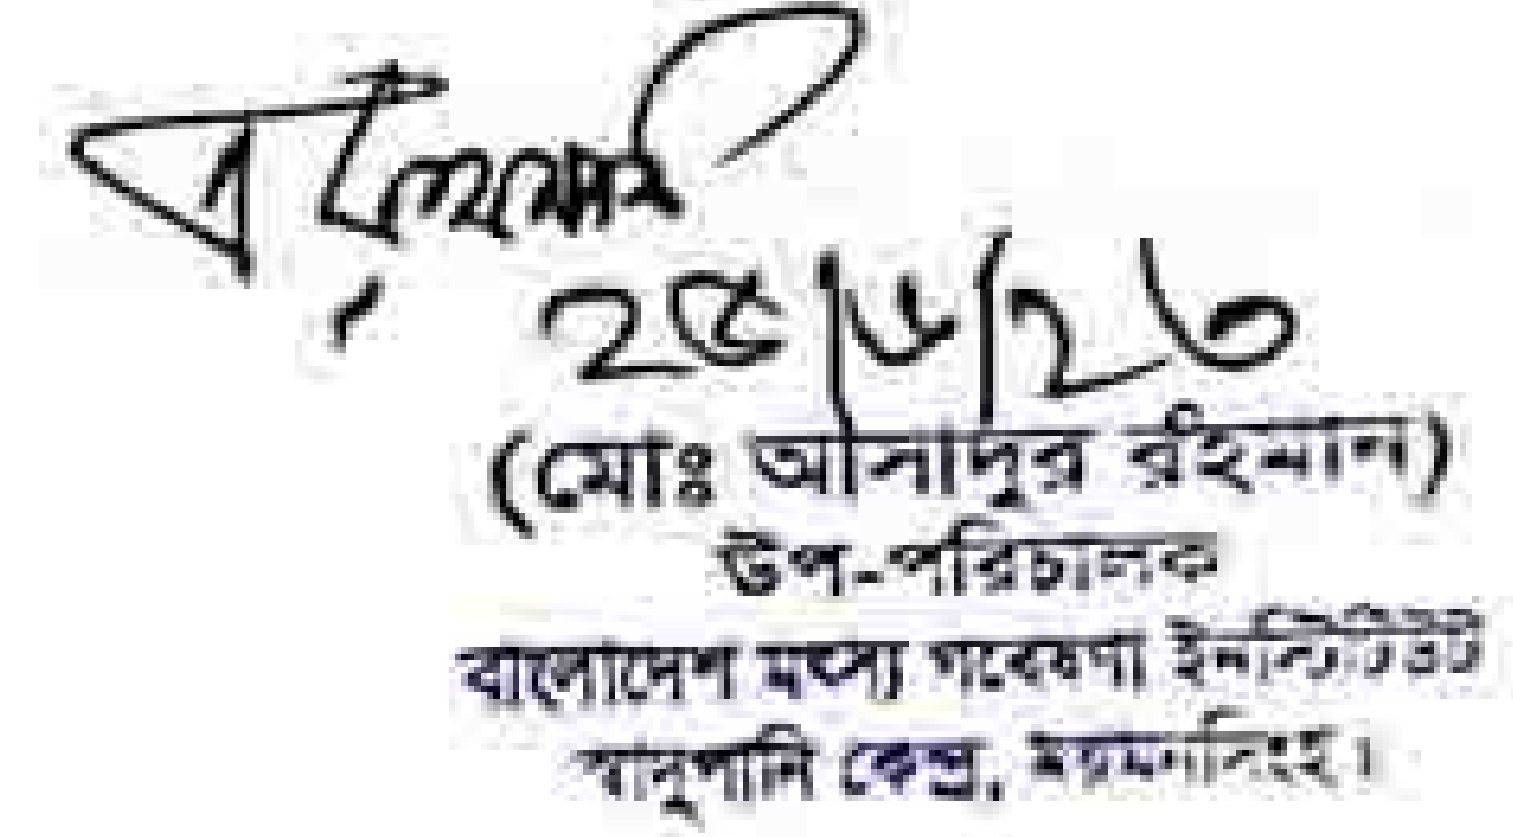 ২৫/৮/২৬
(মোঃ আসাদুর রহমান)
উপ-পরিচালক
বাংলাদেশ মৎস্য গবেষণা ইনস্টিটিউট
স্বাদুপানি কেন্দ্র, ময়মনসিংহ।